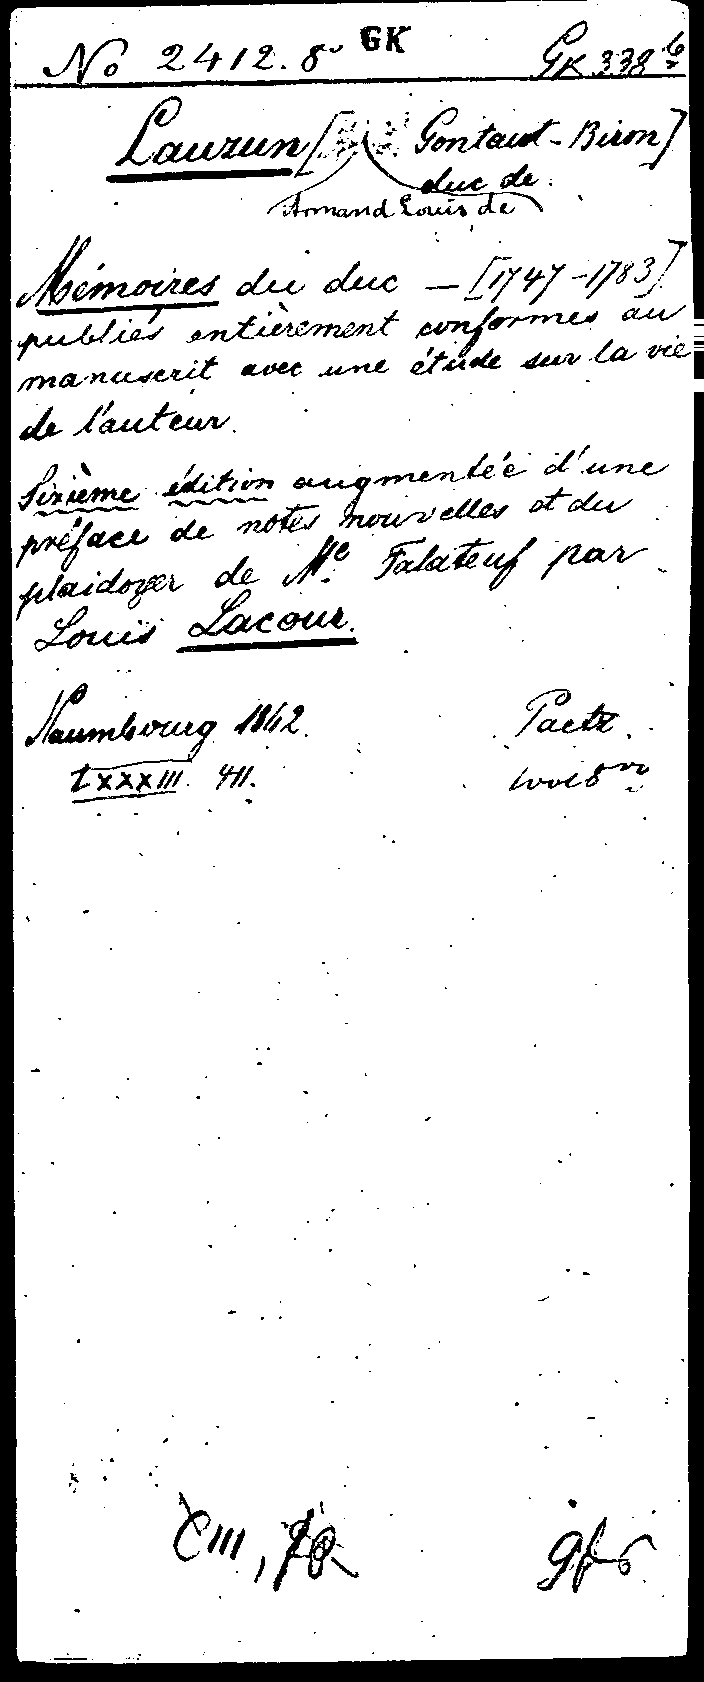 No 2412. 8º GK GK 338 b
Lauzun [Gontaut-Biron]
duc de.
Armand Louis de
Mémoires du duc — [1747-1783]
publiés entièrement conformes au
manuscrit avec une étude sur la vie
de l'auteur.
Sixième édition augmentée d'une
préface de notes nouvelles et du
plaidoyer de Me. Falateuf par
Louis Lacour.
Naumbourg 1862. Paetz.
LXXXIII. 411. 1 vol 8vo
CIII,